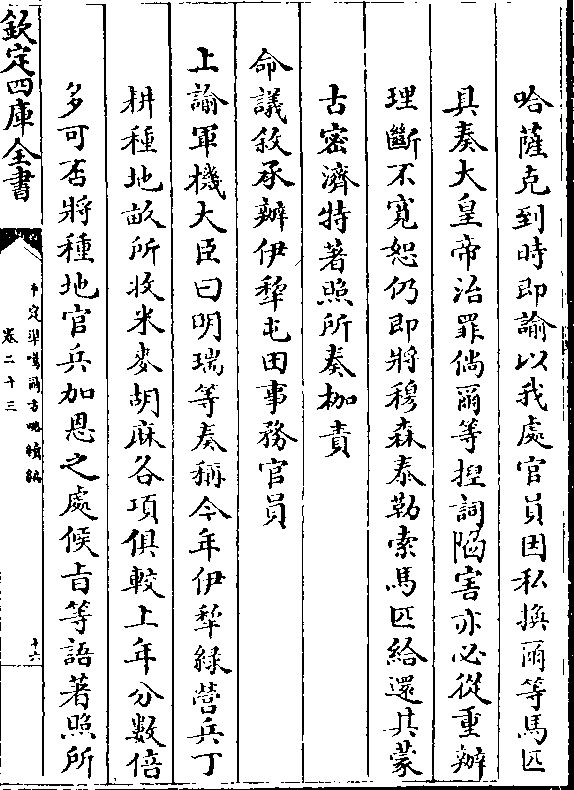 哈薩克到時即諭以我處官員因私換爾等馬匹
具奏大皇帝治罪倘爾等揑詞陷害亦必從重辦
理斷不寬恕仍即將穆森泰勒索馬匹給還其蒙
古密濟特著照所奏枷責
命議敘承辦伊犂屯田事務官員
上諭軍機大臣曰明瑞等奏稱今年伊犂綠營兵丁
耕種地畝所收米麥胡麻各項俱較上年分數倍
多可否將種地官兵加恩之處候旨等語著照所
欽定四庫全書
平定準噶爾方略續編
卷二十三
十六